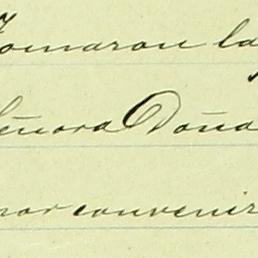 Tomaron la
Señora Doña
por convenir